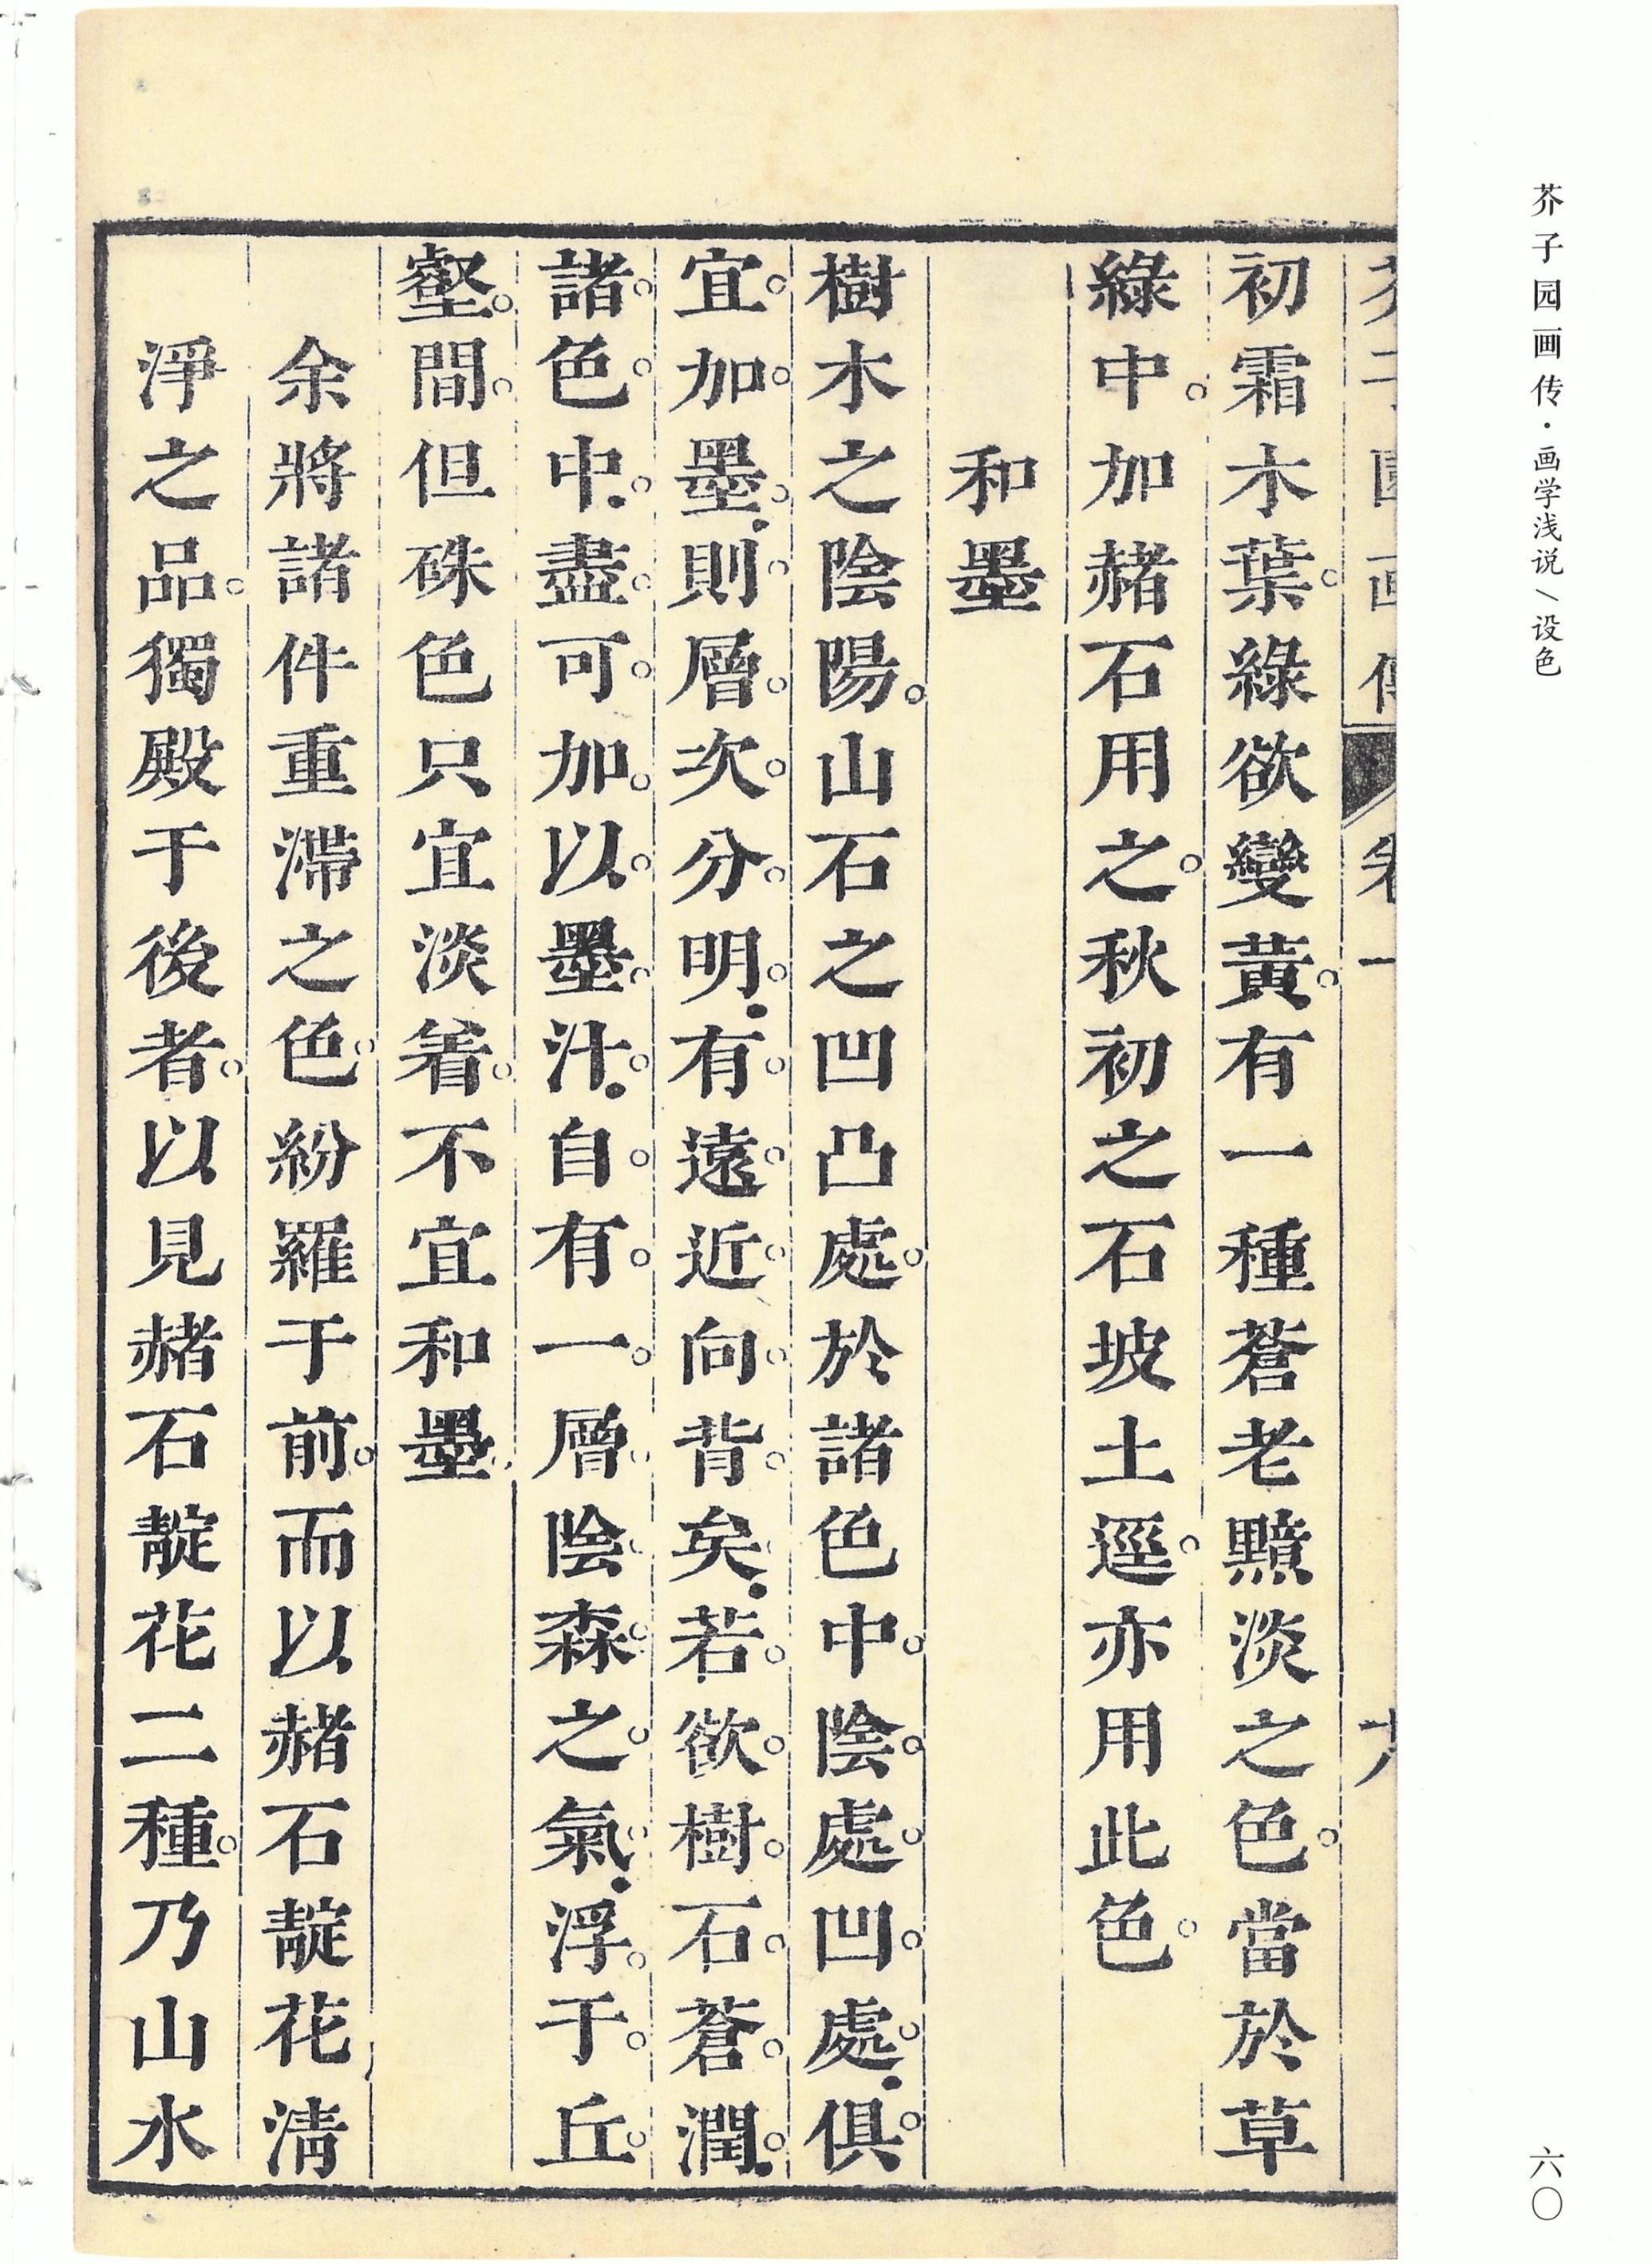 芥子园画传·画学浅说／设色
六〇
初霜木葉綠欲變黃有一種蒼老黯淡之色當於草
綠中加赭石用之秋初之石坡土逕亦用此色
和墨
樹木之陰陽山石之凹凸處於諸色中陰處凹處俱
宜加墨則層次分明有遠近向背矣若欲樹石蒼潤
諸色中盡可加以墨汁自有一層陰森之氣浮于丘
壑間但硃色只宜淡着不宜和墨
余將諸件重滯之色紛羅于前而以赭石靛花清
淨之品獨殿于後者以見赭石靛花二種乃山水